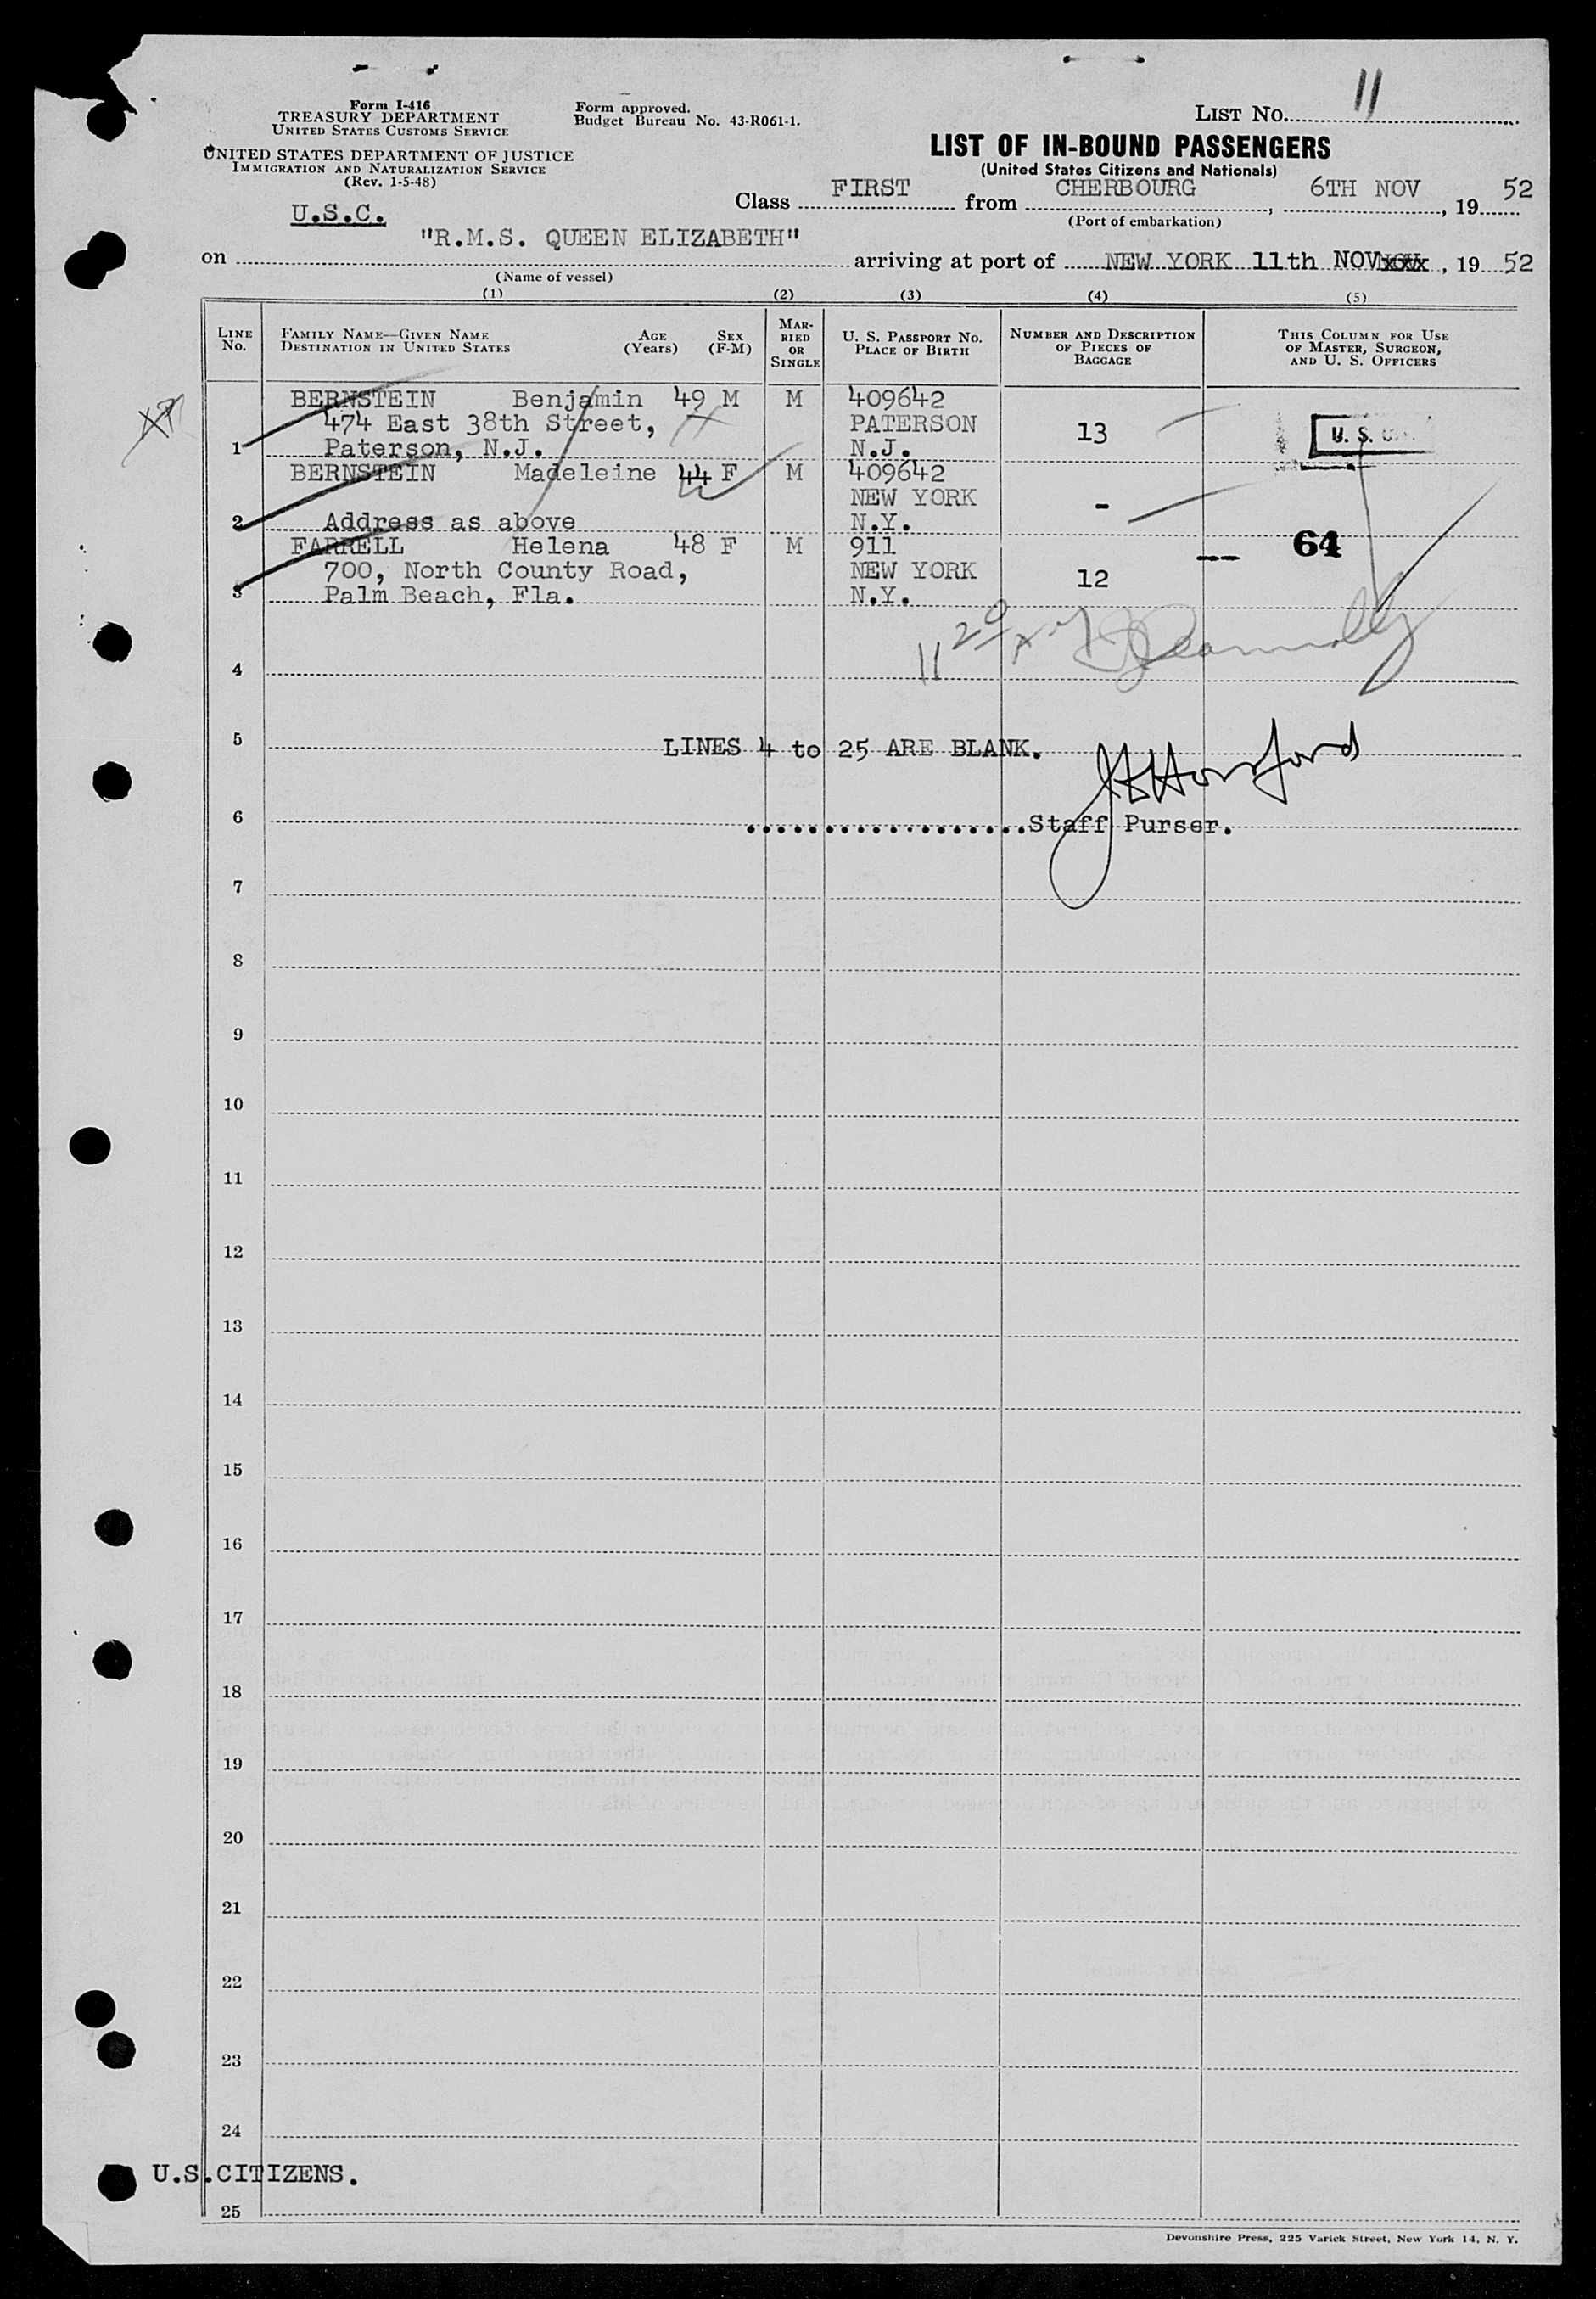 Form I-416
TREASURY DEPARTMENT
UNITED STATES CUSTOMS SERVICE
UNITED STATES DEPARTMENT OF JUSTICE
IMMIGRATION AND NATURALIZATION SERVICE
(Rev. 1-5-48)
U.S.C.
Form approved.
Budget Bureau No. 43-R061-1.
LIST NO. 11
LIST OF IN-BOUND PASSENGERS
(United States Citizens and Nationals)
Class FIRST from CHERBOURG, 6TH NOV, 1952
(Port of embarkation)
on "R.M.S. QUEEN ELIZABETH" arriving at port of NEW YORK 11th NOV, 1952
(Name of vessel)
(1) (2) (3) (4) (5)
LINE NO.
FAMILY NAME—GIVEN NAME
DESTINATION IN UNITED STATES
AGE (Years)
SEX (F-M)
MARRIED OR SINGLE
U. S. PASSPORT NO.
PLACE OF BIRTH
NUMBER AND DESCRIPTION OF PIECES OF BAGGAGE
THIS COLUMN FOR USE OF MASTER, SURGEON, AND U. S. OFFICERS
BERNSTEIN Benjamin 49 M M 409642
474 East 38th Street, PATERSON 13 U. S.
1 Paterson, N.J. N.J.
BERNSTEIN Madeleine 44 F M 409642
NEW YORK -
2 Address as above N.Y.
FARRELL Helena 48 F M 911 64
700, North County Road, NEW YORK 12
3 Palm Beach, Fla. N.Y.
11 20
4
5 LINES 4 to 25 ARE BLANK.
6 Staff Purser.
7
8
9
10
11
12
13
14
15
16
17
18
19
20
21
22
23
24
U.S.CITIZENS.
25
Devonshire Press, 225 Varick Street, New York 14, N. Y.